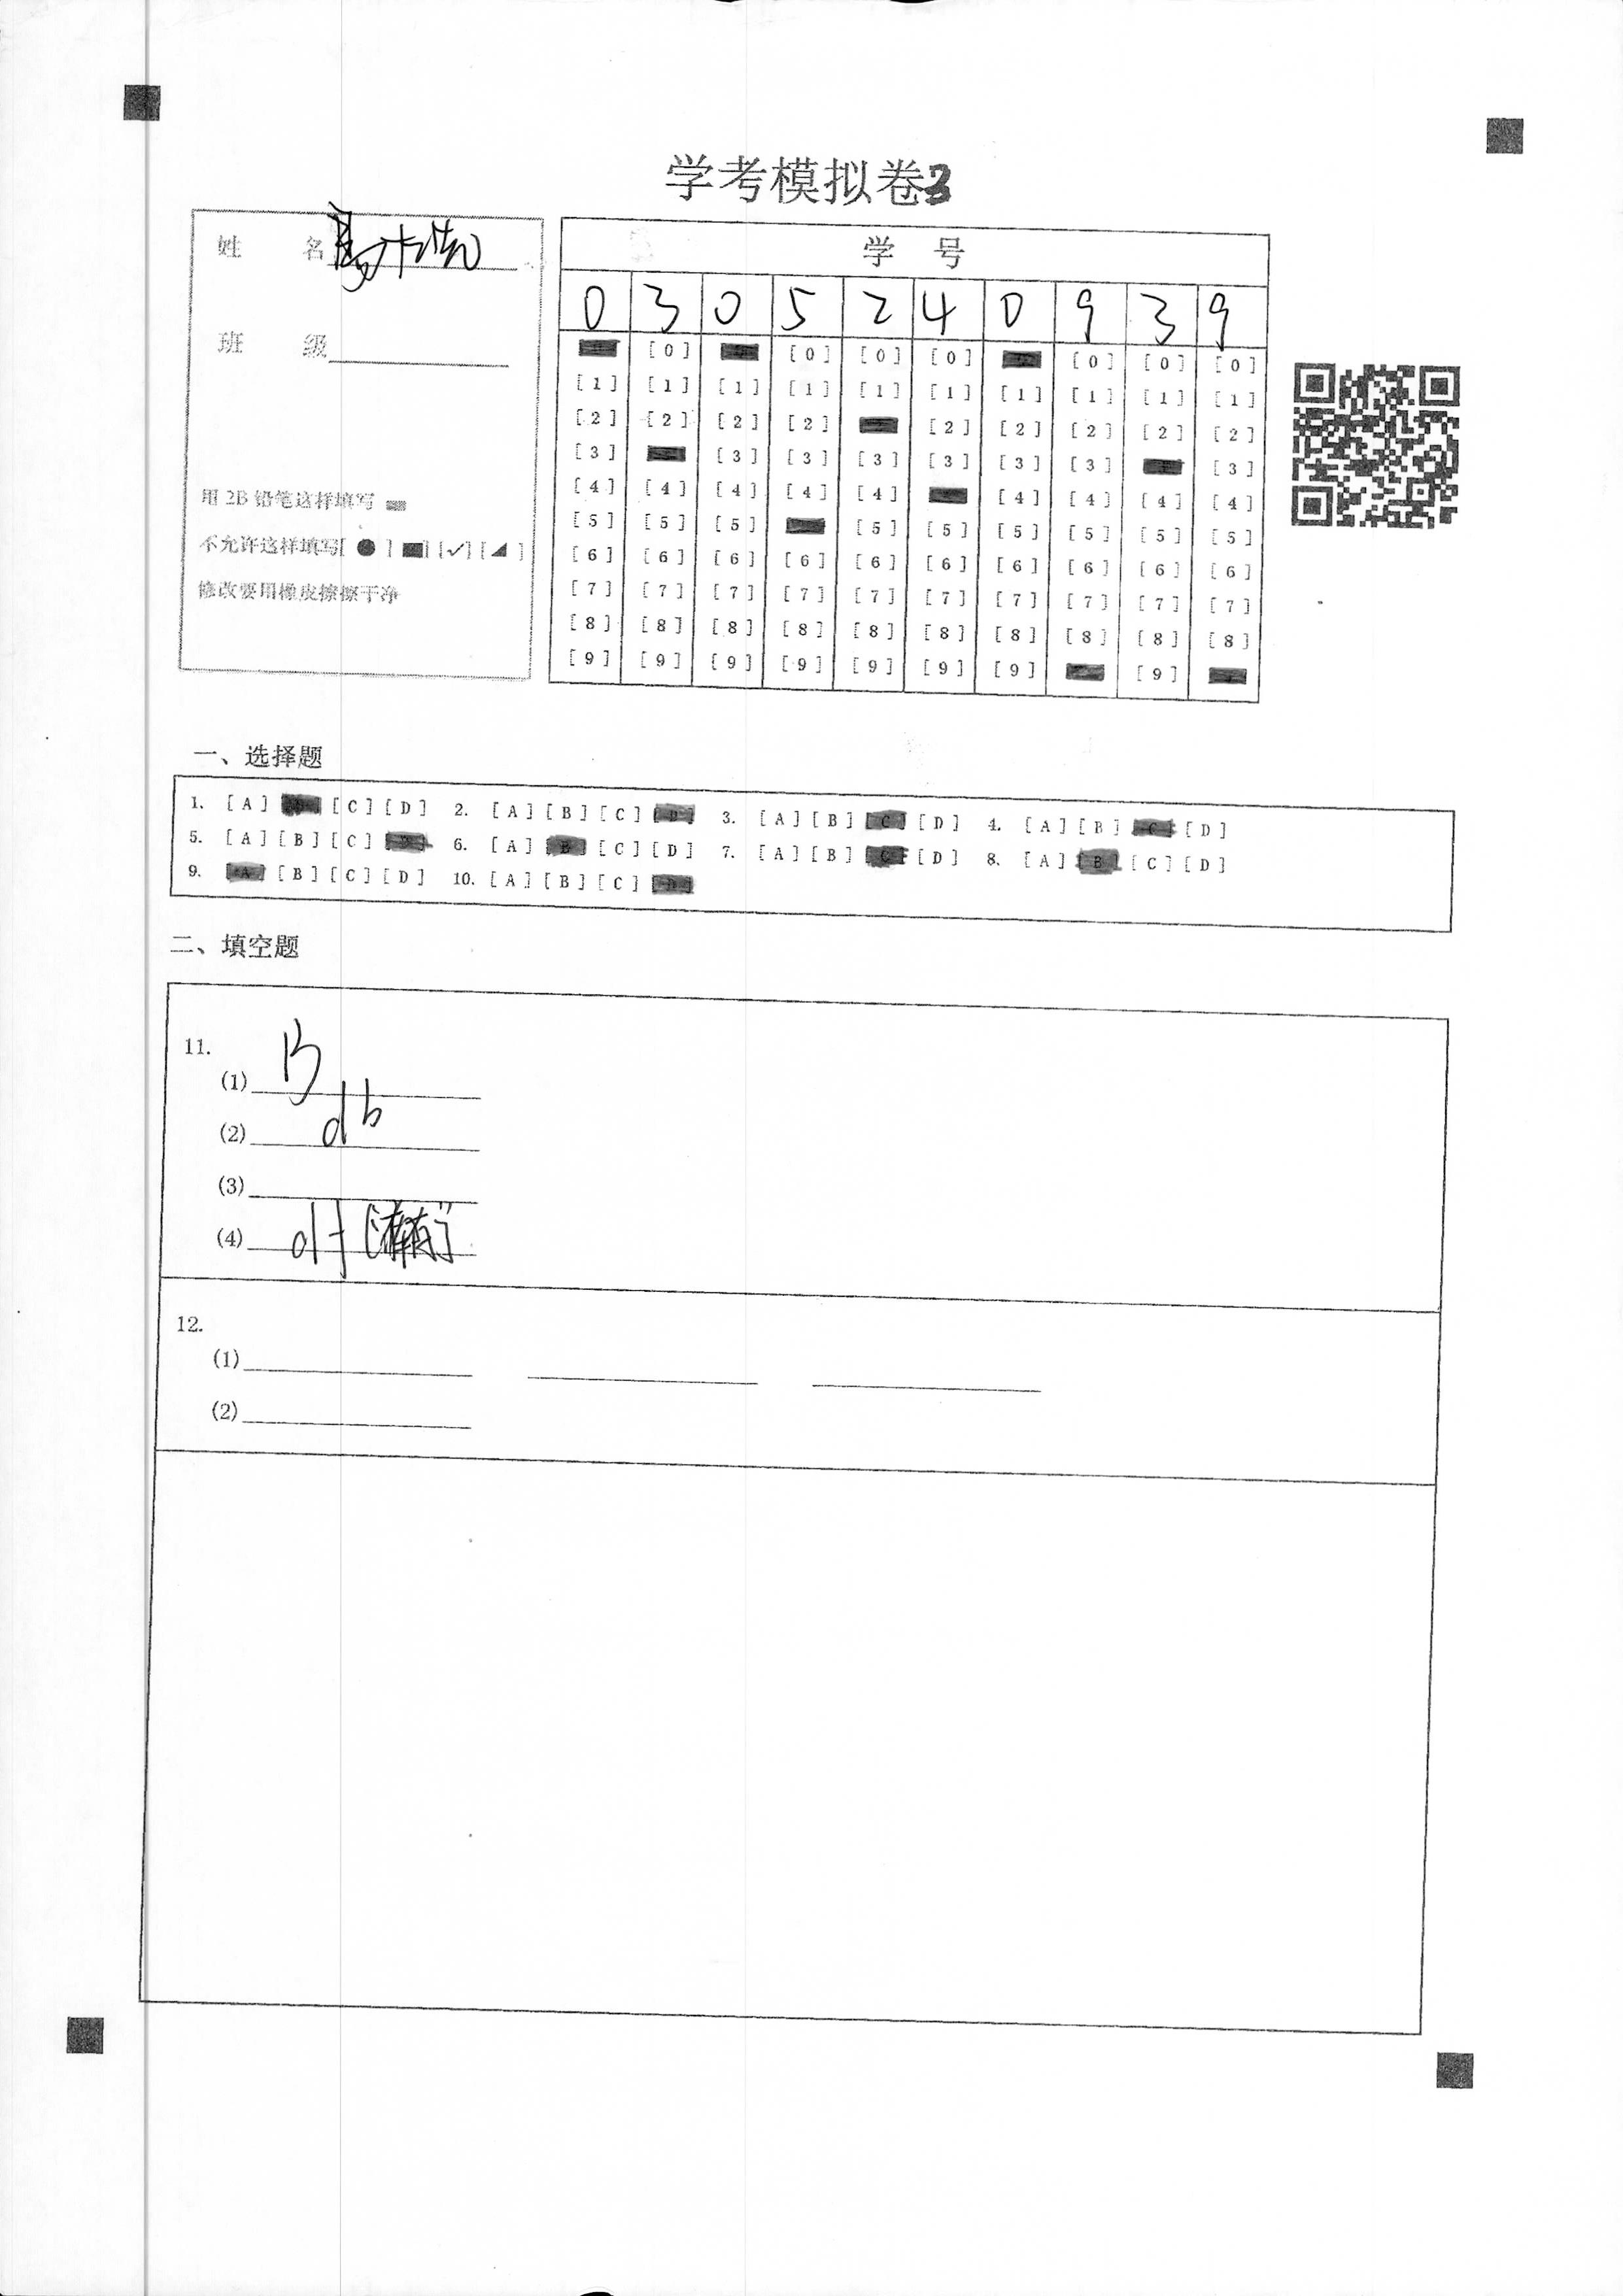 学考模拟卷3
姓 名
班 级
用 2B 铅笔这样填写
不允许这样填写[ ● ] [■] [✓] [◢ ]
修改要用橡皮擦擦干净
学 号
0 3 0 5 2 4 0 9 3 9
[0] [0] [0] [0] [0] [0] [0]
[1] [1] [1] [1] [1] [1] [1] [1] [1] [1]
[2] [2] [2] [2] [2] [2] [2] [2] [2]
[3] [3] [3] [3] [3] [3] [3] [3]
[4] [4] [4] [4] [4] [4] [4] [4] [4]
[5] [5] [5] [5] [5] [5] [5] [5] [5]
[6] [6] [6] [6] [6] [6] [6] [6] [6] [6]
[7] [7] [7] [7] [7] [7] [7] [7] [7] [7]
[8] [8] [8] [8] [8] [8] [8] [8] [8] [8]
[9] [9] [9] [9] [9] [9] [9] [9]
一、选择题
1. [A] [C] [D] 2. [A] [B] [C] [D] 3. [A] [B] [C] [D] 4. [A] [B] [C] [D]
5. [A] [B] [C] [D] 6. [A] [B] [C] [D] 7. [A] [B] [C] [D] 8. [A] [B] [C] [D]
9. [A] [B] [C] [D] 10. [A] [B] [C] [D]
二、填空题
11.
(1) B
(2) db
(3)
(4)
12.
(1)
(2)